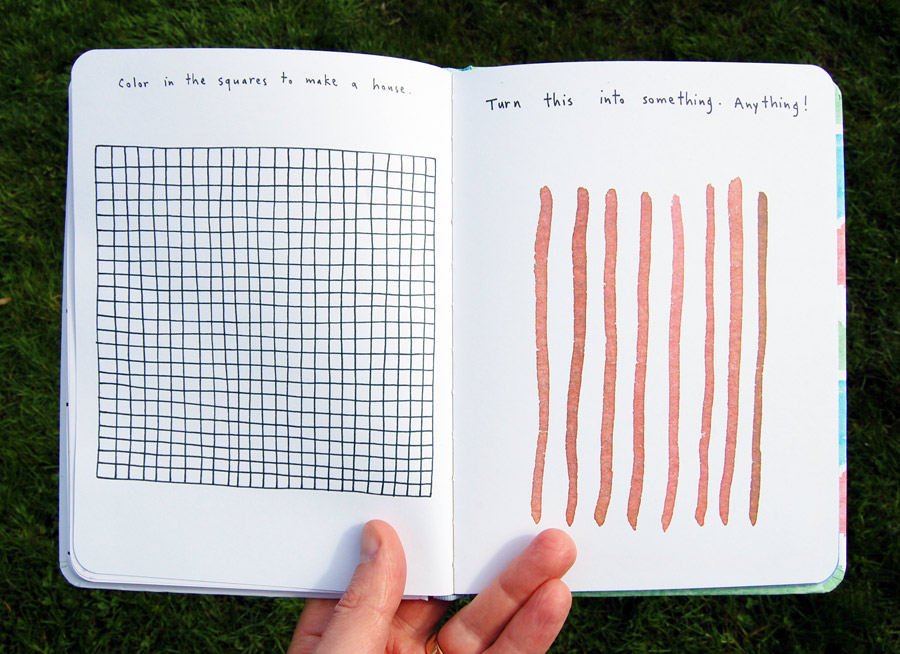 Color in the squares to make a house.
Turn this into something. Anything!